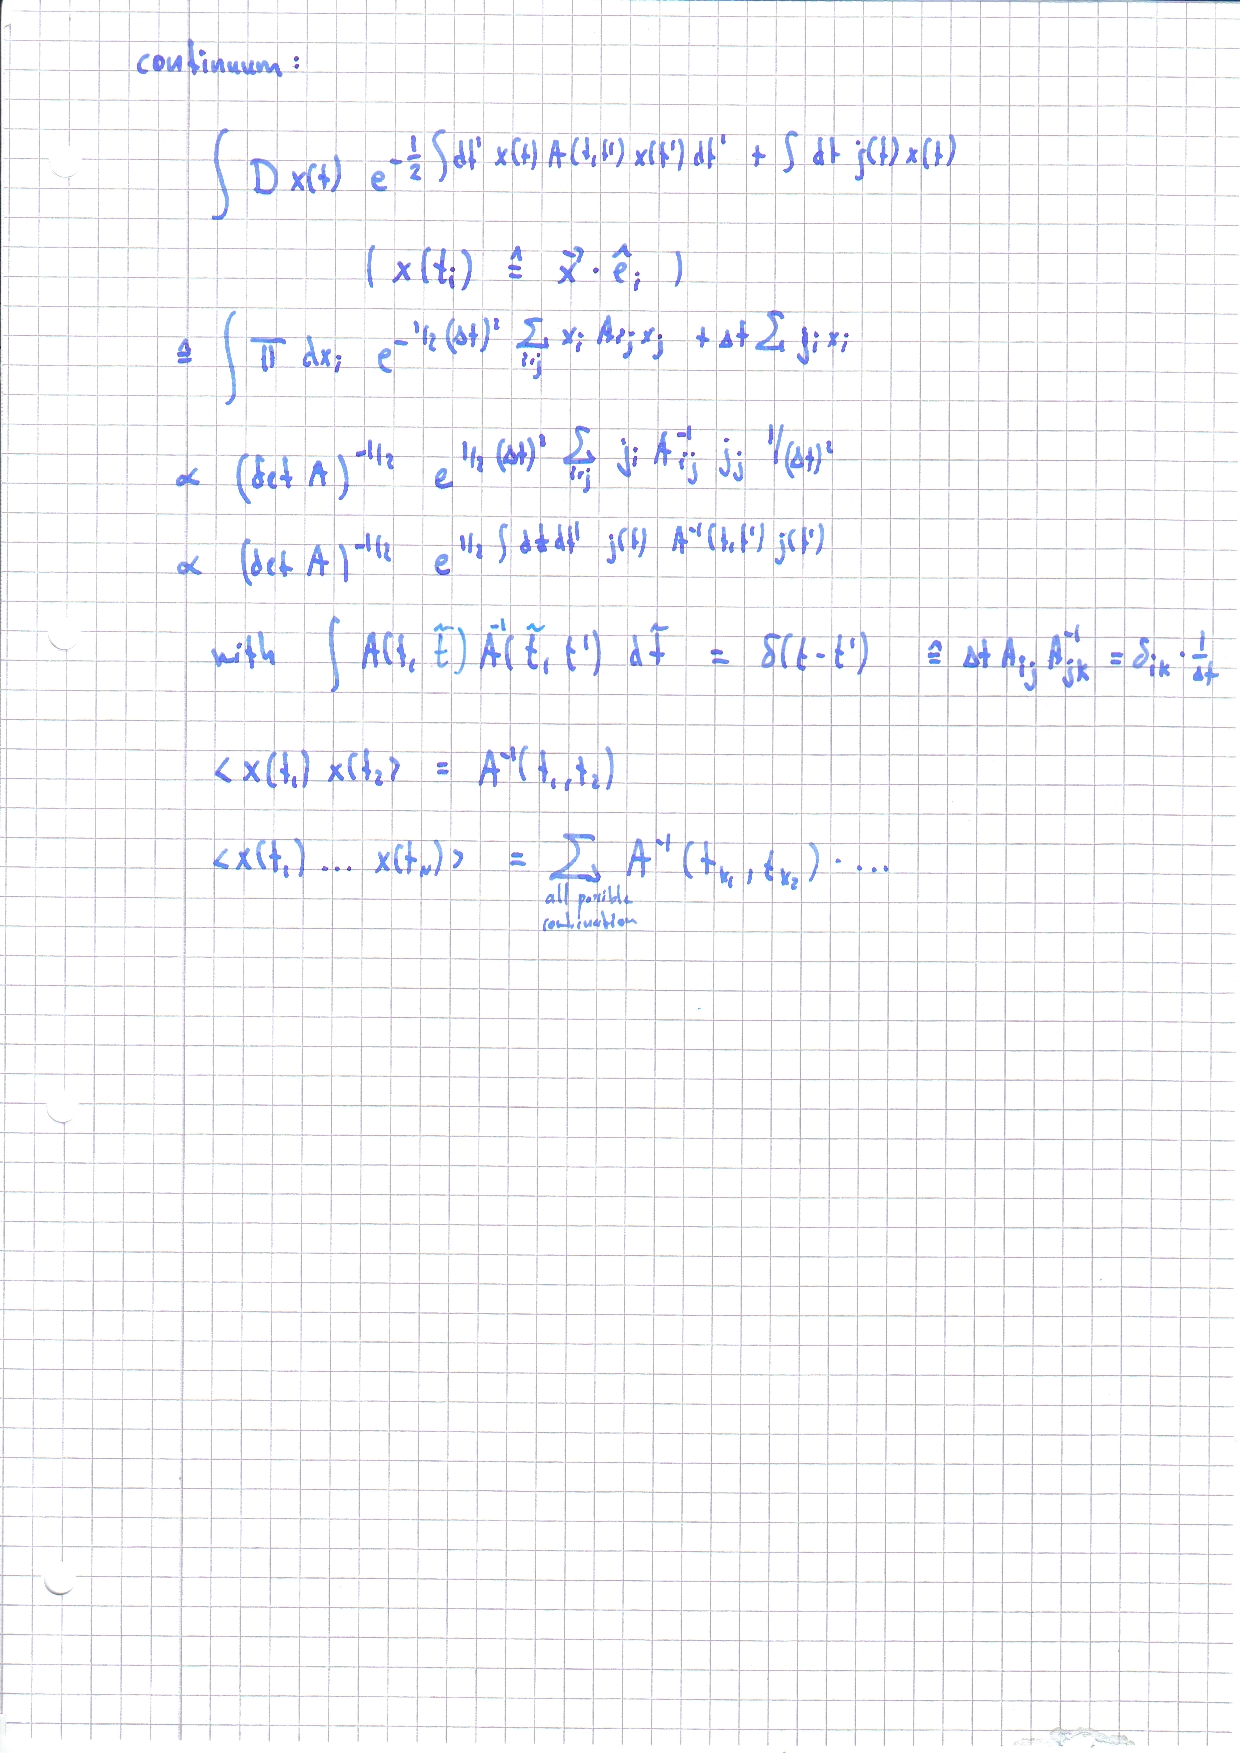 continuum:
∫ D x(t) e^{-1/2 ∫ dt' x(t) A(t,t') x(t') dt' + ∫ dt j(t) x(t)}
( x(t_i) ≙ x⃗ · ê_i )
≙ ∫ Π dx_i e^{-1/2 (Δt)² Σ_{i,j} x_i A_{ij} x_j + Δt Σ j_i x_i}
∝ (det A)^{-1/2} e^{1/2 (Δt)² Σ_{i,j} j_i A^{-1}_{ij} j_j 1/(Δt)²}
∝ (det A)^{-1/2} e^{1/2 ∫ dt dt' j(t) A^{-1}(t,t') j(t')}
with ∫ A(t, t̃) A^{-1}(t̃, t') dt̃ = δ(t-t') ≙ Δt A_{ij} A^{-1}_{jk} = δ_{ik} · 1/Δt
<x(t_1) x(t_2)> = A^{-1}(t_1, t_2)
<x(t_1) ... x(t_N)> = Σ A^{-1}(t_{k_1}, t_{k_2}) · ...
all possible
combination